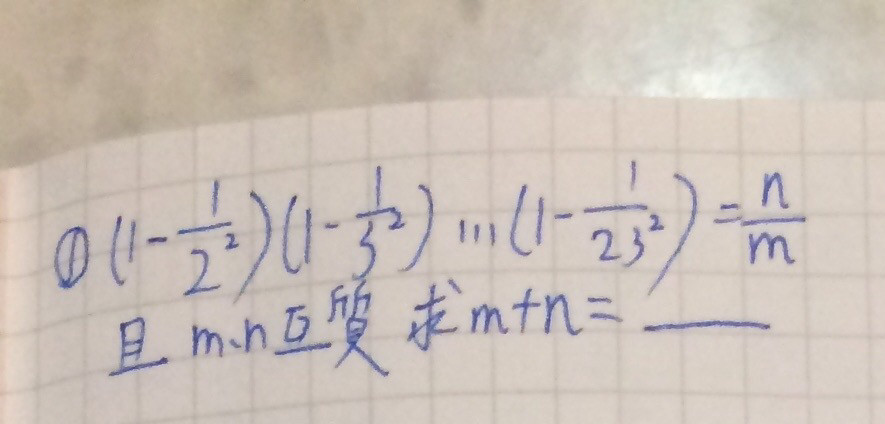 ① (1-\frac{1}{2^2})(1-\frac{1}{3^2})...(1-\frac{1}{23^2})=\frac{n}{m}
且 m、n互質 求m+n=____